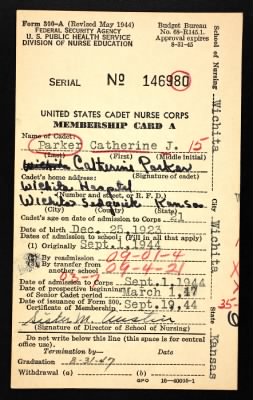 Form 300-A (Revised May 1944)
FEDERAL SECURITY AGENCY
U. S. PUBLIC HEALTH SERVICE
DIVISION OF NURSE EDUCATION
Budget Bureau
No. 68-R145.1.
Approval expires
8-31-45
SERIAL No 146980
UNITED STATES CADET NURSE CORPS
MEMBERSHIP CARD A
Name of Cadet:
Parker Catherine J. 15
(Last) (First) (Middle initial)
Catherine Parker
(Signature of cadet)
Cadet's home address:
Wichita Hospital
(Number and street, or R. F. D.)
Wichita Sedgwick Kansas
(City) (County) (State)
Cadet's age on date of admission to Corps 21
Date of birth Dec. 25, 1923
Dates of admission to school: (Fill in all that apply)
(1) Originally Sept. 1, 1944
By readmission 09-01-4
By transfer from another school 09-4-21
03-7
Date of admission to Corps Sept. 1, 1944
Date of prospective beginning of Senior Cadet period March 1, 47
Date of issuance of Form 300, Certificate of Membership. Sept. 19, 44
Sister M. Austin
(Signature of Director of School of Nursing)
Do not write below this line (this space is for central office use).
Termination by— Date
Graduation 8-31-47
Withdrawal (a)
GPO 16-40008-1
School of Nursing Wichita
City Wichita
State Kansas
35-
6